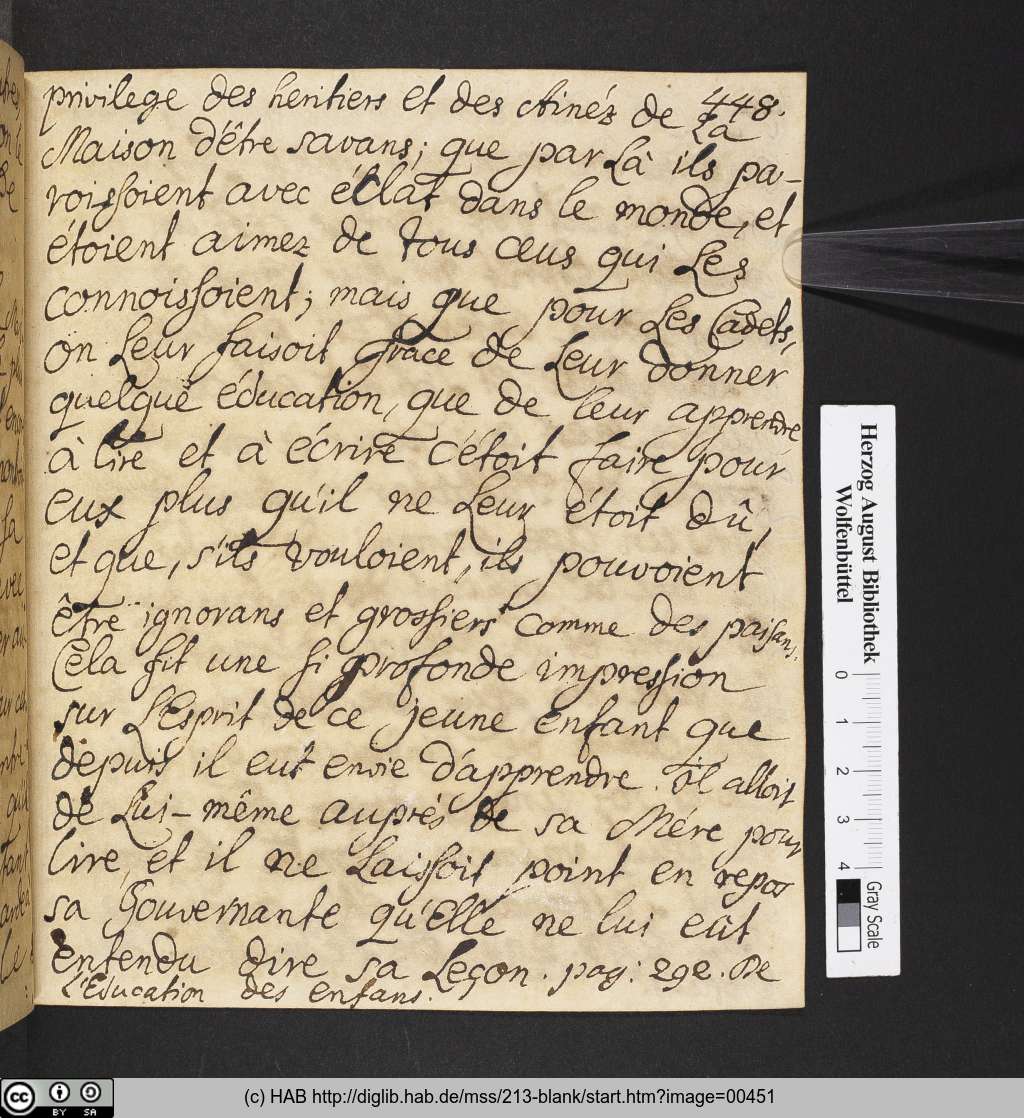 448.
privilege des heritiers et des Ainéz de La
Maison d'être savans; que par Là ils pa-
roissoient avec éclat dans le monde, et
étoient aimez de tous ceus qui Les
connoissoient; mais que pour Les Cadets,
on Leur faisoit grace de Leur donner
quelque éducation, que de leur apprendre
à lire et à écrire c'étoit faire pour
eux plus qu'il ne Leur étoit dû,
et que, s'ils vouloient, ils pouvoient
être ignorans et grossiers comme des païsans.
Cela fit une si profonde impression
sur L'Esprit de ce jeune enfant que
depuis il eut envie d'apprendre. il alloit
de Lui-même auprés de sa Mére pour
lire, et il ne Laissoit point en repos
sa Gouvernante qu'Elle ne lui eût
entendu dire sa Leçon. pag: 292. De
l'Education des enfans.
Herzog August Bibliothek
Wolfenbüttel
0 1 2 3 4
Gray Scale
cc BY SA
(c) HAB http://diglib.hab.de/mss/213-blank/start.htm?image=00451